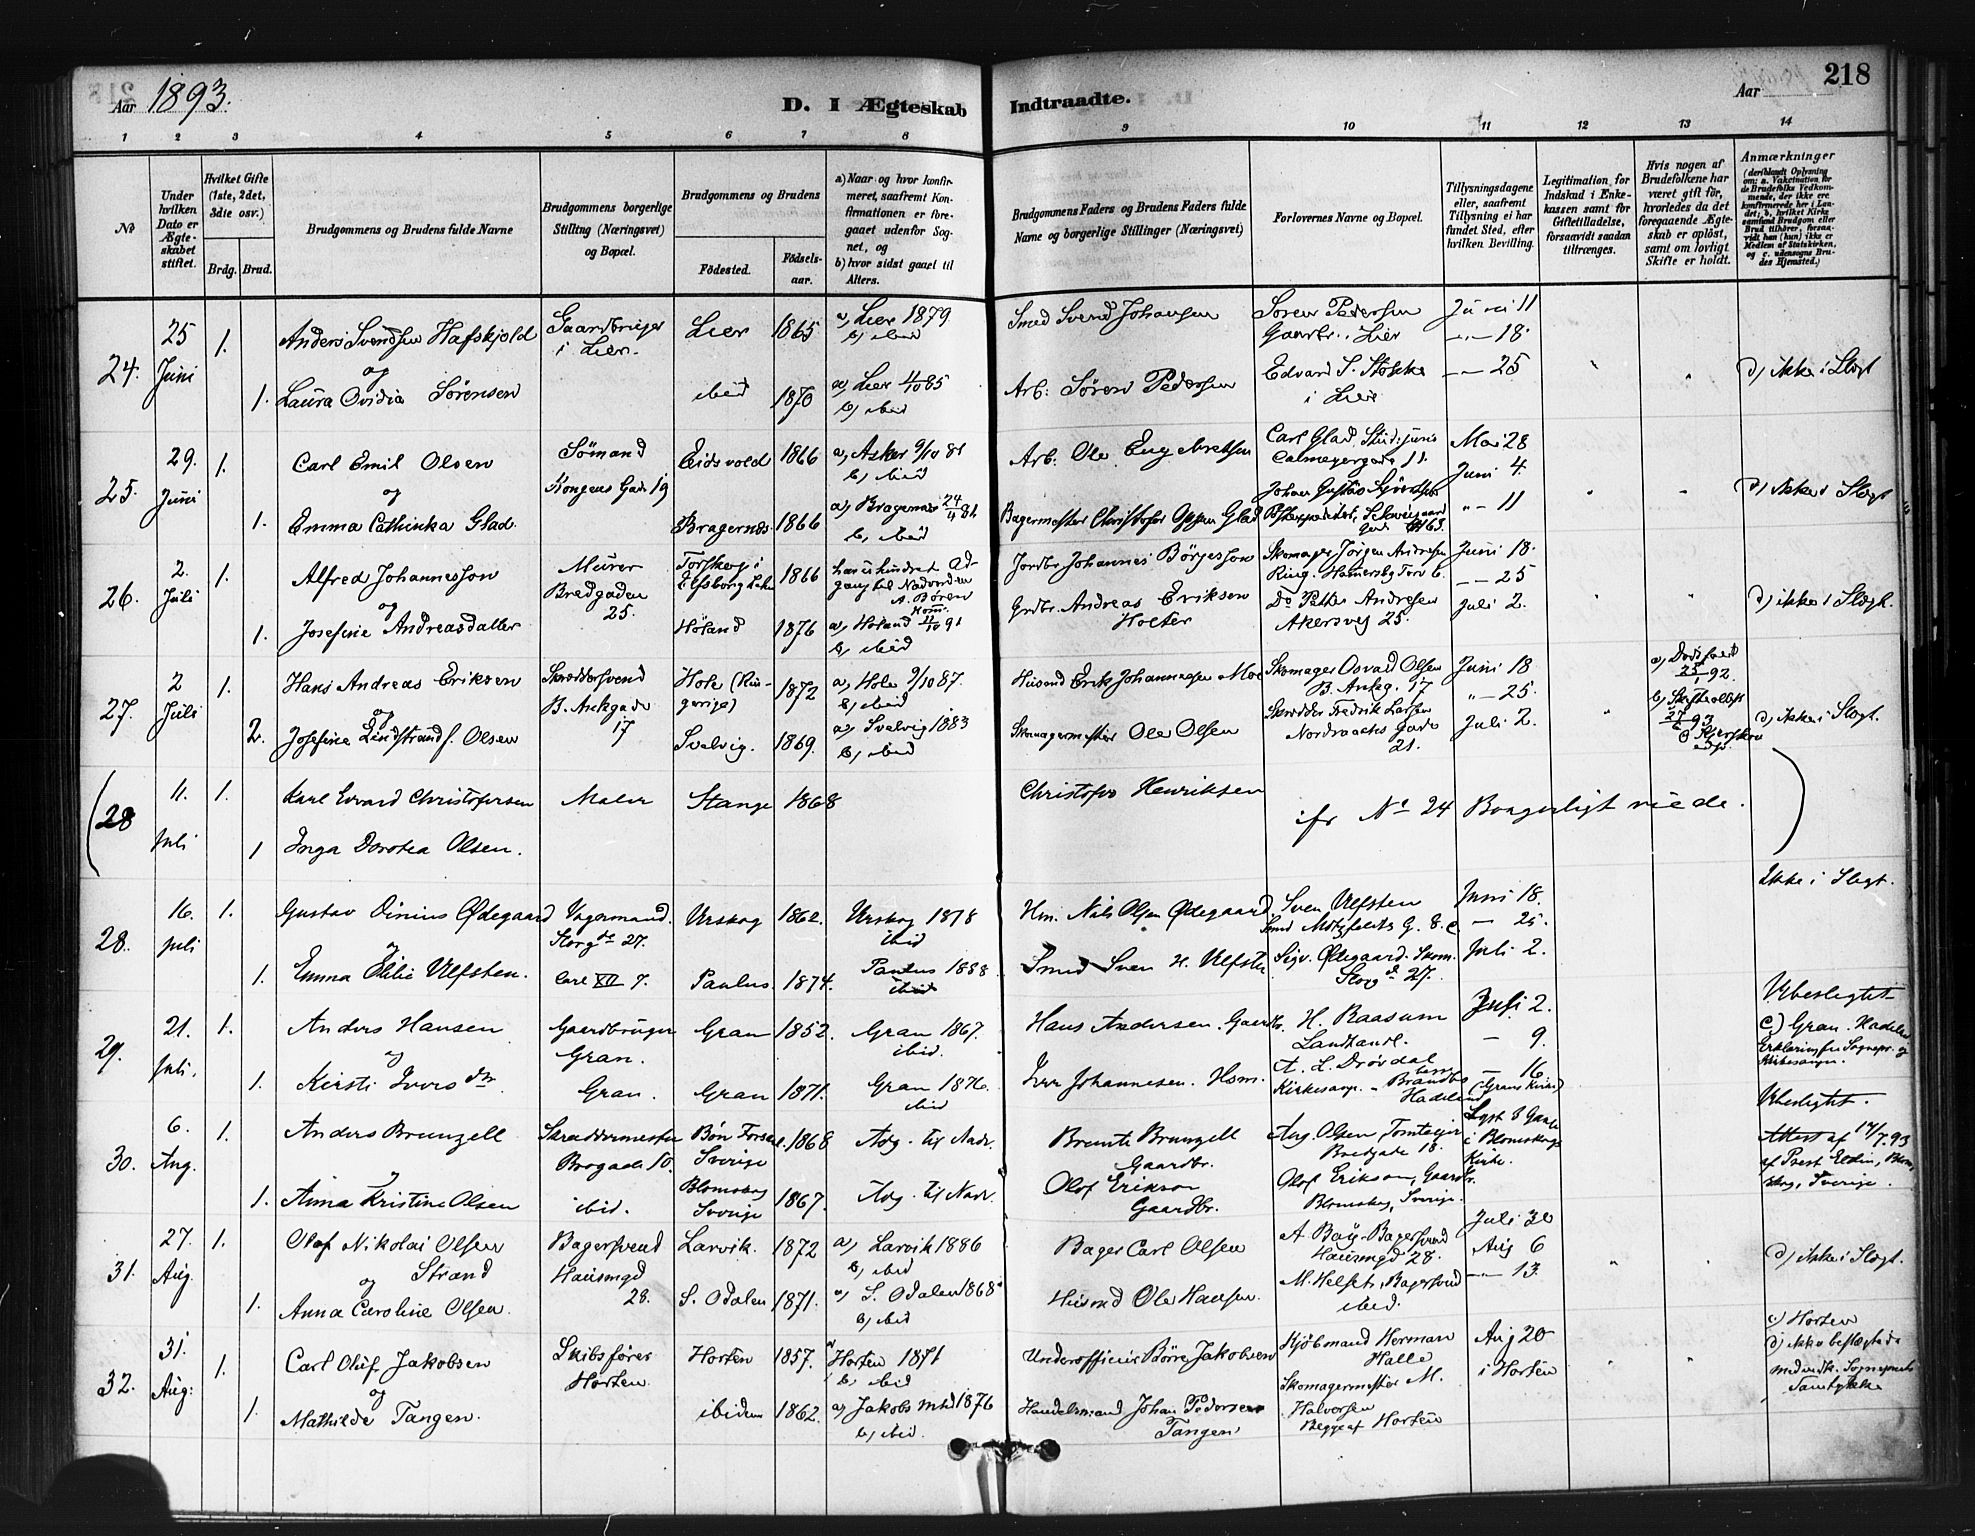 Aar 1893.
D. I Ægteskab Indtraadte.
Aar
218
1 2 3 4 5 6 7 8 9 10 11 12 13 14
No
Under hvilken Dato er Ægteskabet stiftet.
Hvilket Gifte (1ste, 2det, 3die osv.)
Brdg. Brud.
Brudgommens og Brudens fulde Navne
Brudgommens borgerlige Stilling (Næringsvei) og Bopæl.
Brudgommens og Brudens
Fødested.
Fødselsaar.
a) Naar og hvor konfirmeret, saafremt Konfirmationen er foregaaet udenfor Sognet, og
b) hvor sidst gaaet til Alters.
Brudgommens Faders og Brudens Faders fulde Navne og borgerlige Stillinger (Næringsvei)
Forlovernes Navne og Bopæl.
Tillysningsdagene eller, saafremt Tillysning ei har fundet Sted, efter hvilken Bevilling.
Legitimation for Indskud i Enkekassen samt for Giftetilladelse, forsaavidt saadan tiltrænges.
Hvis nogen af Brudefolkene har været gift før, hvorledes da det foregaaende Ægteskab er opløst, samt om lovligt Skifte er holdt.
Anmærkninger (deriblandt Oplysning om: a. Vakcination for de Brudefolks Vedkommende, der ikke ere konfirmerede her i Landet; b. hvilket Kirkesamfund Brudgom eller Brud tilhører, forsaavidt han (hun) ikke er Medlem af Statskirken, og c. udensogns Brudes Hjemsted.)
24. 25 Juni 1. Anders Svendsen Hafskjold Gaardbruger i Lier. Lier 1865 a, Lier 1879 b, ibid Smed Svend Johansen Søren Pedersen Gaardbr., Lier Juni 11 -"- 18.
og
1. Laura Ovidia Sørensen ibid 1870 a) Lier 4/10 85 b, ibid Arb: Søren Pedersen Edvard S. Stokke i Lier -"- 25 d) ikke i Slægt
25. 29. Juni 1. Carl Emil Olsen Sømand Kongens Gade 19 Eidsvold 1866 a, Asker 9/10 81 b, ibid Arb: Ole Engebretsen Carl Glad, Stud: juris Calmeyergade 11. Mai 28 Juni 4.
og
1. Emma Cathinka Glad. Bragernes 1866 a) Bragernes b, ibid Bagermester Christofer Oppen Glad Johan Gustav "- 11 d) ikke i Slægt
26. 2. Juli 1. Alfred Johannesson Murer Bredgaden 25. 1866 Jordbr. Johannes Börjesson Skomager Jørgen Andresen Ring. Hamersbg Torv 6. Juni 18. -"- 25
og
1. Josefine Andreasdatter Höland 1876 a, Höland 11/10 91 b, ibid Grdbr. Andreas Eriksen Holter Do Petter Andresen Akersvej 25. Juli 2. d) ikke i Slægt.
27. 2 Juli 1. Hans Andreas Eriksen Skræddersvend B. Ankgade 17 Hole (Ringerige) 1872 a, Hole 9/10 87. b, ibid Husmd Erik Johannesen Moe Skomager Osvald Olsen B. Ankg. 17 Juni 18 "- 25. a)
og
2. Josefine Lindstrand f. Olsen Svelvig. 1869. a) Svelvig 1883 b, ibid Skomagermester Ole Olsen Skrædder Fredrik Larsen Nordraachs Gade 21. Juli 2. b) d) ikke i Slægt.
(28 11. Juli 1. Karl Edvard Christofersen Maler Stange 1868 Christofer Henriksen cfr No 24 Borgerligt viede.
1 Inga Dorotea Olsen. )
28. 16. juli 1. Gustav Dinius Ødegaard Vognmand. Storgdn 27. Urskog 1862. Urskog 1878 ibid Hm. Nils Olsen Ødegaard Sven Ulfsten Smed Motzfeldts G. 8. c Juni 18. - 25. Ikke i Slegt.
og
1. Emma Ulfsten. Carl XII 7. Paulus. 1874. Paulus 1888 ibid Smed Sven H. Ulfsten Sigv. Ødegaard. Skom. 27. Juli 2.
29. 21. juli. 1. Anders Hansen Gaardbruger Gran. Gran 1852. Gran 1867. ibid. Hans Andersen. Gaardbr. H. Raasum Landhandl. Juli 2. - 9. Ubeslegtet c.) Gran. Hadeland Erklæring fra Sognepr. og Kirkesanger.
og
1. Kirsti Iversdtr Gran. Gran 1871. Gran 1876. ibid Iver Johannesen. Hsm. A. L. Drövdal Kirkesang. - Brandbu Hadeland - 16 (Grans Kirke)
30. 6. Aug. 1. Anders Brunzell Skræddermester Brogade 10. Sverige 1868 Adg. til Nadv. Gaardbr. Aug. Olsen, Tomteejer Bredgade 18. i Blomskogs Kirke. Ubeslegtet. Attest af 17/7.93 af Prest Sverige.
1. Anna Kristine Olsen ibid. Blomskog Sverige 1867. Adg. til Nadv. Olof Erikson Gaardbr. Olof Erikson, Gaardbr. Blomskog, Sverige.
31. 27. Aug. 1. Olaf Nikolai Olsen Strand Bagersvend Hausmgd 28. Larvik. 1872 a) Larvik 1886 b, ibid Bager Carl Olsen A Bagersvend Hausmgd 28. Juli 30 Aug 6
og
1. Anna Caroline Olsen. S. Odalen 1871. a, S. Odalen 1868 b, ibid Husmd Ole Hansen. M. Helset, Bagersvend ibid. -"- 13. d) ikke i Slægt.
32. 31. Aug: 1. Carl Oluf Jakobsen Skibsfører Horten. Horten 1857. a Horten 1871 b, ibid Underofficer Børre Jakobsen Kjøbmand Herman Halle Aug 20 i Horten c) Horten d) ikke beslægtede
og
1. Mathilde Tangen. ibidem 1862. a) Jakobs b, ibid. Handelsmand Johan Pedersen Tangen Skomagermester M. Halversen Begge af Horten Sogneprests Samtykke